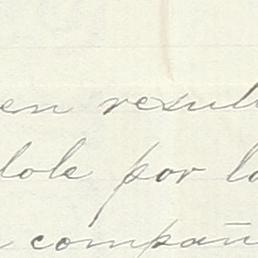 en resul
dole por lo
a compañ